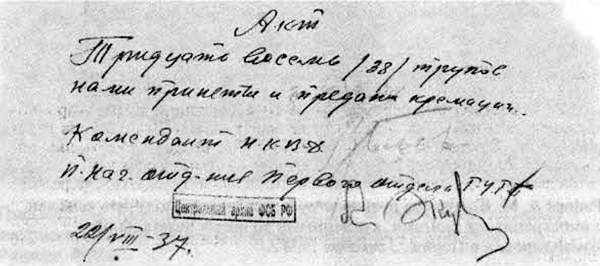 Акт
Тридцать восемь /38/ трупов
нами приняты и преданы кремации.
Комендант НКВД
П. нач. отд-ния Первого отдела ГУГБ
Центральный архив ФСБ РФ
22/VIII-37.